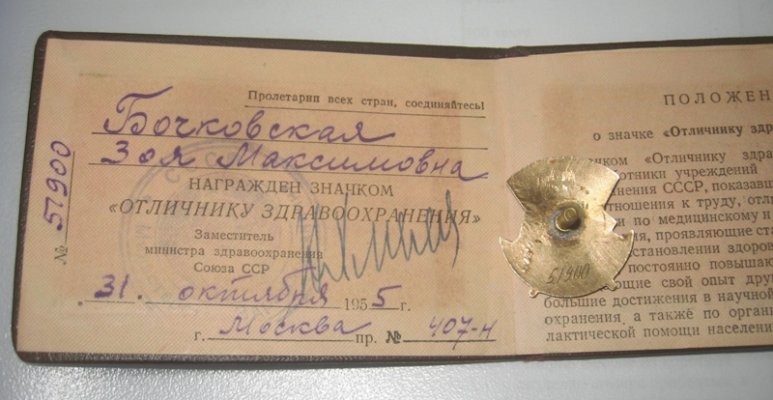 Пролетарии всех стран, соединяйтесь!
Бочковская
Зоя Максимовна
НАГРАЖДЕН ЗНАЧКОМ
«ОТЛИЧНИКУ ЗДРАВООХРАНЕНИЯ»
Заместитель
министра здравоохранения
Союза ССР
31. октября 1955 г.
г. Москва пр. № 407-н
№ 51900
ПОЛОЖЕН
о значке «Отличнику здр
ком «Отличнику здра
ботники учреждений
нения СССР, показавш
отношения к труду, отли
и по медицинскому и
ия, проявляющие ста
восстановлении здоров
постоянно повышаю
ющие свой опыт друг
большие достижения в научной
охранения, а также по орган
лактической помощи населени
51900